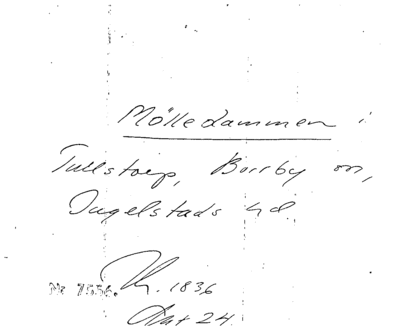 Mölledammen i
Tullstorp, Borrby sn,
Ingelstads hd.
Nr 7556. 1836
24